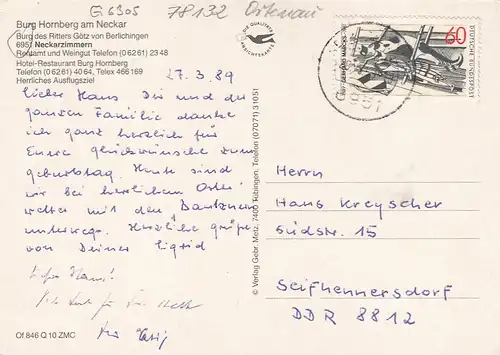 G 6305
78132 Ortenau
Burg Hornberg am Neckar
Burg des Ritters Götz von Berlichingen
6951 Neckarzimmern
Rentamt und Weingut Telefon (06261) 2348
Hotel-Restaurant Burg Hornberg
Telefon (06261) 4064, Telex 466169
Herrliches Ausflugsziel
27.3.89
Lieber Hans Dir und der
ganzen Familie danke
ich ganz herzlich für
Eure Glückwünsche zum
Geburtstag. Heute sind
wir bei herrlichem Oster
wetter mit den
unterwegs. Herzliche Grüße
von Deiner Sigrid
Hans!
Of 846 Q 10 ZMC
DIE QUALITÄTS
ANSICHTSKARTE
© Verlag Gebr. Metz, 7400 Tübingen, Telefon (07071) 31051
60
DEUTSCHE BUNDESPOST
6951
Herrn
Hans Kreyscher
Südstr. 15
Seifhennersdorf
DDR 8812